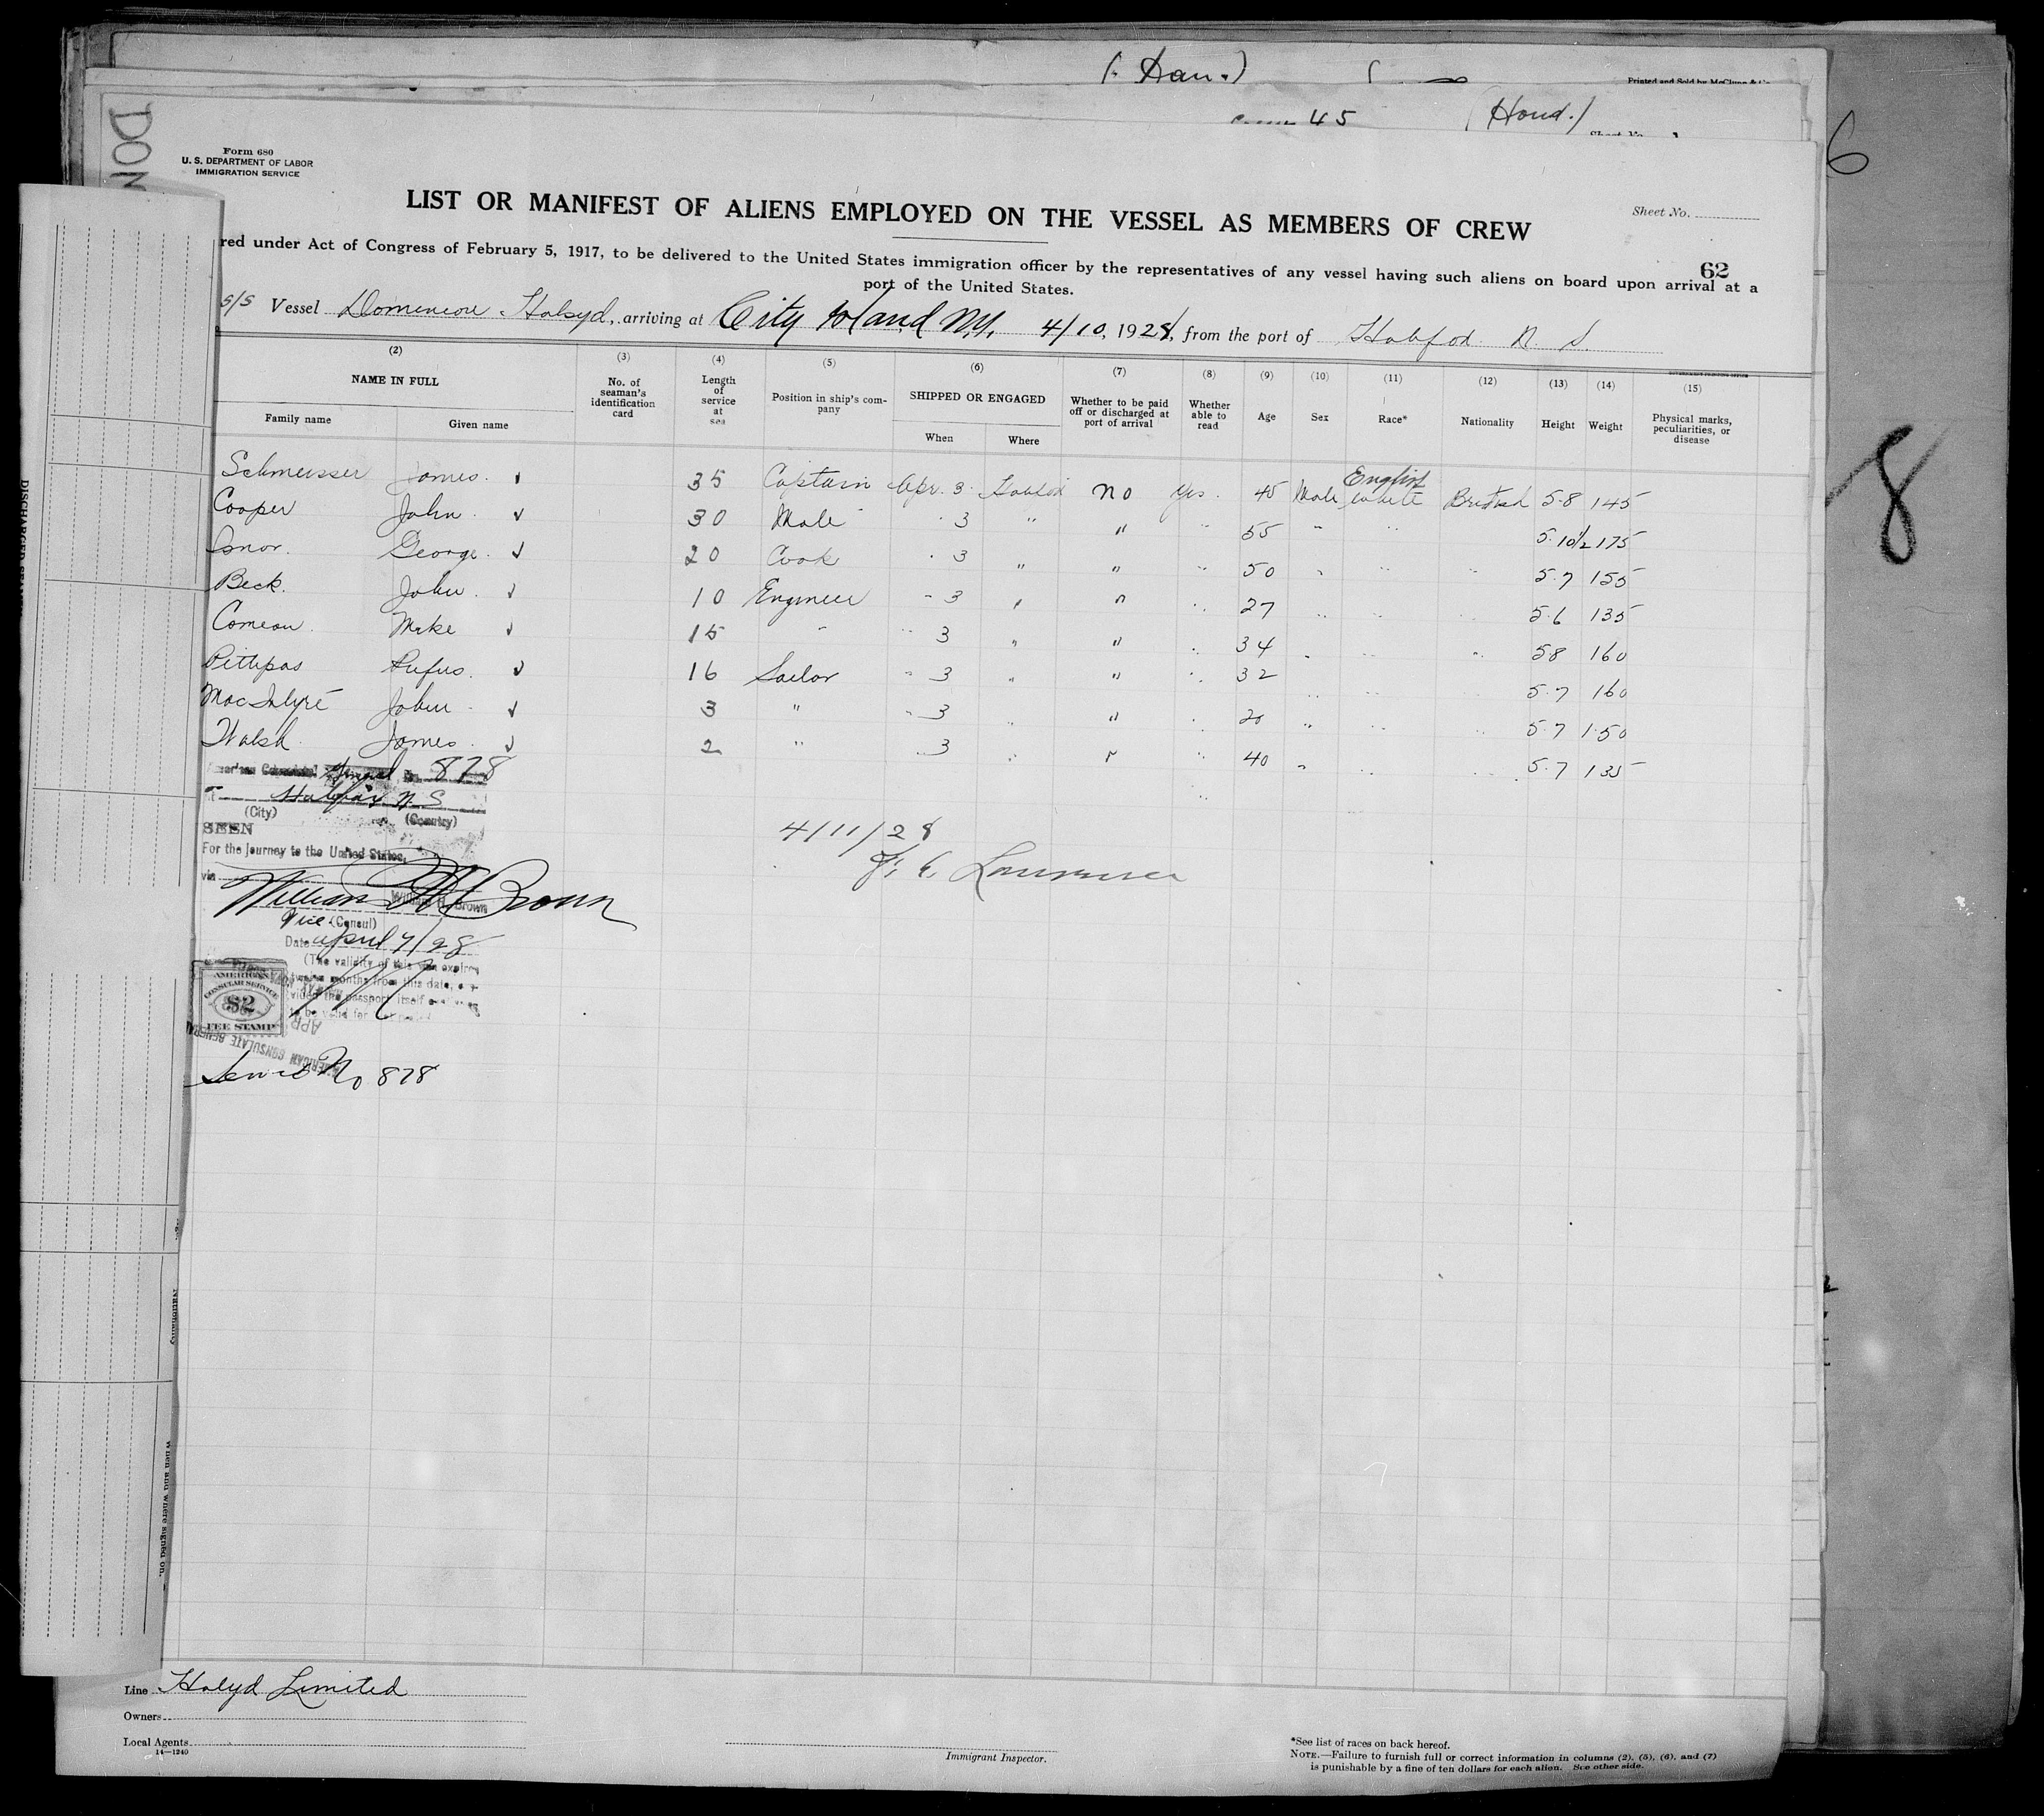 ( Han.)
Printed and Sold by McClung & Co
45 (Hond.)
6
DOM
Form 680
U. S. DEPARTMENT OF LABOR
IMMIGRATION SERVICE
Sheet No.
LIST OR MANIFEST OF ALIENS EMPLOYED ON THE VESSEL AS MEMBERS OF CREW
62
red under Act of Congress of February 5, 1917, to be delivered to the United States immigration officer by the representatives of any vessel having such aliens on board upon arrival at a
port of the United States.
S/S Vessel Dominion Halsyd, arriving at City Island N.Y. 4/10, 1928, from the port of Halifax N S.
(2) (3) (4) (5) (6) (7) (8) (9) (10) (11) (12) (13) (14) (15)
NAME IN FULL No. of seaman's identification card Length of service at sea Position in ship's company SHIPPED OR ENGAGED Whether to be paid off or discharged at port of arrival Whether able to read Age Sex Race* Nationality Height Weight Physical marks, peculiarities, or disease
Family name Given name When Where
Schmeisser James. ✓ 35 Captain Apr. 3 Halifax no yes. 45 Male English white British 5-8 145
Cooper John. ✓ 30 Mate 3 " " " 55 " " 5-10½ 175
George. ✓ 20 Cook 3 " " " 50 " " " 5-7 155
Beck. John. ✓ 10 Engineer " 3 " " " 27 " " " 5-6 135
Comeau. Mike ✓ 15 " " 3 " " " 34 " " " 5-8 160
Pittipas Rufus. ✓ 16 Sailor " 3 " " " 32 " " " 5-7 160
MacIntyre John ✓ 3 " " 3 " " " 20 " " " 5-7 150
Walsh. James. ✓ 2 " 3 " " " 40 " " " 5-7 135
American Consulate General No. 878
at Halifax N. S
(City) (Country)
SEEN
For the journey to the United States,
via
William H. Brown
William H. Brown
Vice (Consul)
Date April 7/28
(The validity of this visa expires
twelve months from this date, pro-
vided the passport itself continues
to be valid for that period
AMERICAN
CONSULAR SERVICE
$2
FEE STAMP
APR
AMERICAN CONSULATE GENERAL
Service No 878
4/11/28
8
DISCHARGED SEAMEN
Nationality
When and where signed on.
Line Halyd Limited
Owners
Local Agents
14—1240
Immigrant Inspector.
*See list of races on back hereof.
NOTE.—Failure to furnish full or correct information in columns (2), (5), (6), and (7)
is punishable by a fine of ten dollars for each alien. See other side.